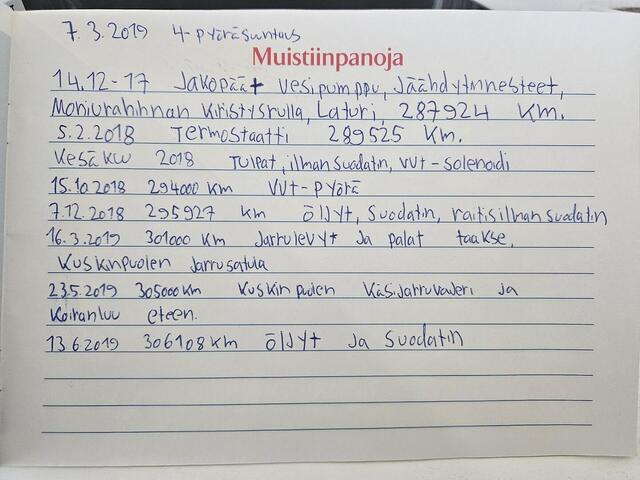 7.3.2019 4-pyöräsuntaus
Muistiinpanoja
14.12-17 Jakopäät Vesipumppu, Jäähdytinnesteet,
Moniurahihnan Kiristysrulla, Laturi, 287924 KM.
5.2.2018 Termostaatti 289525 KM.
Kesäkuu 2018 Tulpat, ilmansuodatin, VVt-solenoidi
15.10.2018 294000 KM VVt-Pyörä
7.12.2018 295927 KM Öljyt, Suodatin, raitisilmansuodatin
16.3.2019 301000 KM Jarrulevyt Ja palat taakse,
Kuskinpuolen Jarrusatula
23.5.2019 305000KM Kuskinpuolen Käsijarruvaijeri Ja
Koiranluu eteen.
13.6.2019 306108KM Öljyt Ja Suodatin